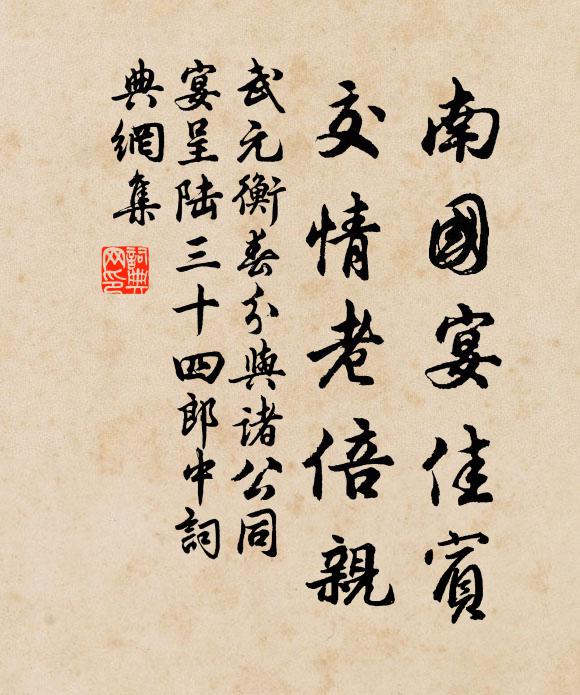 南國宴佳賓
交情老倍親
武元衡春分與諸公同
宴呈陆三十四郎中詞
典網集
詞典
网印